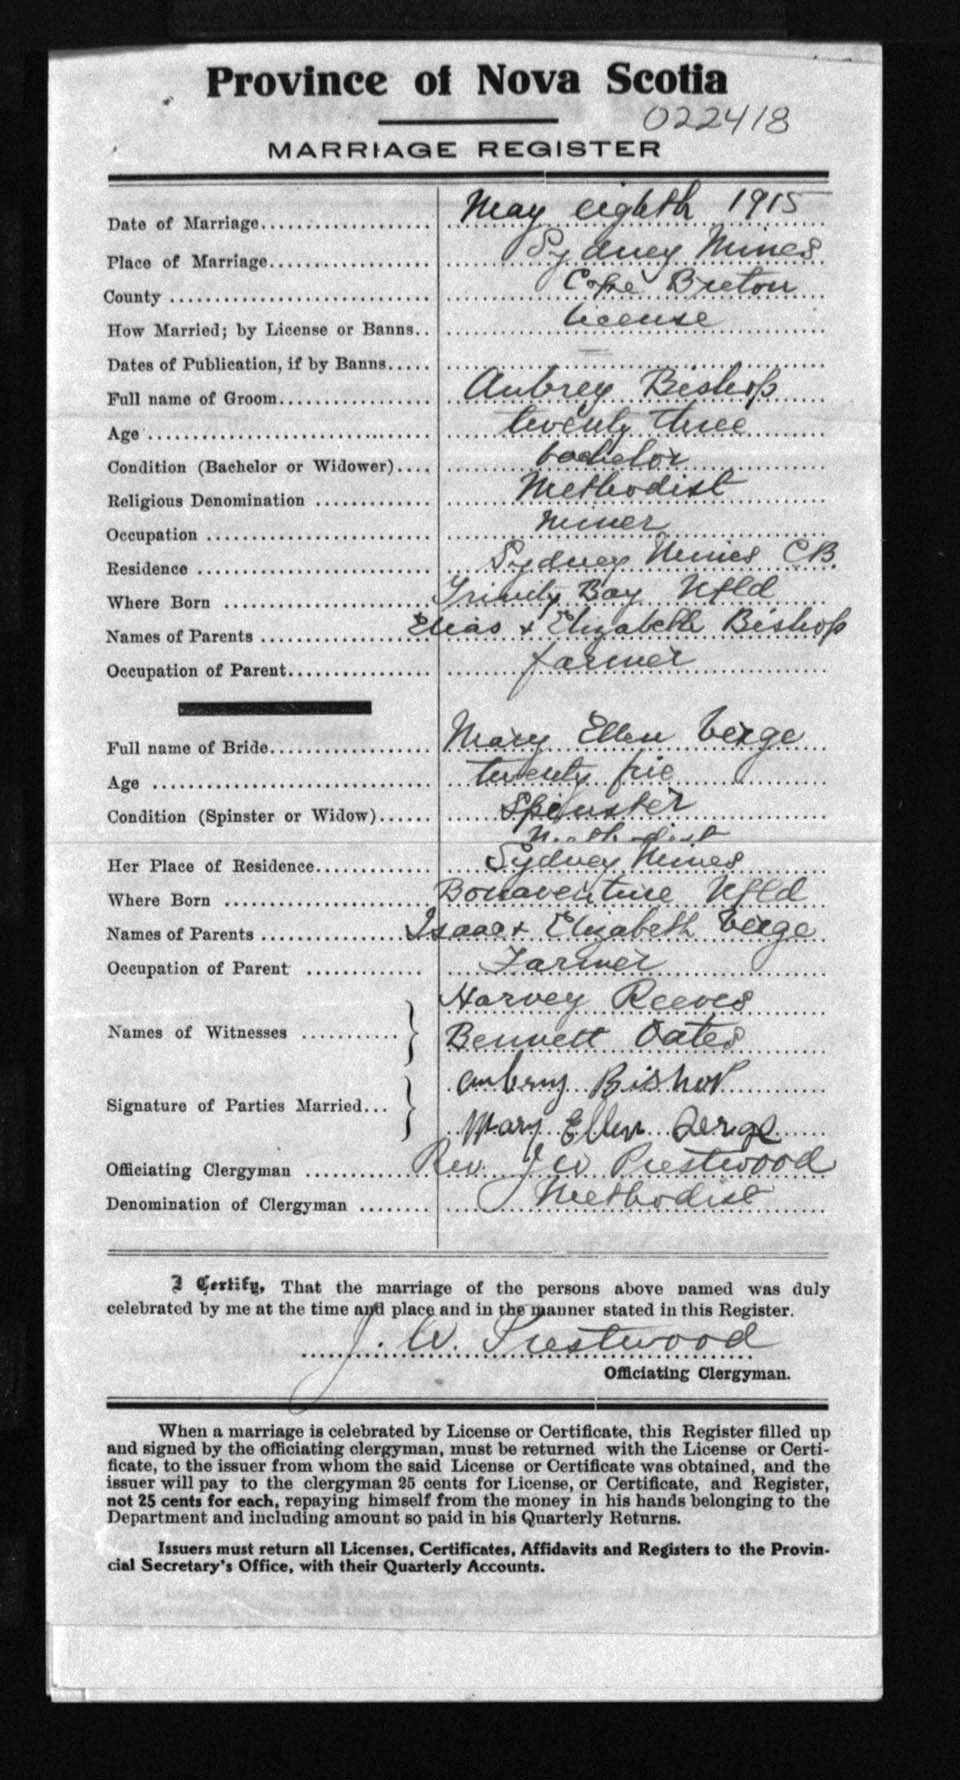 Province of Nova Scotia
022418
MARRIAGE REGISTER
Date of Marriage May eighth 1915
Place of Marriage Sydney Mines
County Cape Breton
How Married; by License or Banns license
Dates of Publication, if by Banns
Full name of Groom Aubrey Bishop
Age twenty three
Condition (Bachelor or Widower) bachelor
Religious Denomination Methodist
Occupation miner
Residence Sydney Mines C.B.
Where Born Trinity Bay Nfld
Names of Parents Elias + Elizabeth Bishop
Occupation of Parent farmer
Full name of Bride Mary Ellen Verge
Age twenty
Condition (Spinster or Widow) Spinster
Methodist
Her Place of Residence Sydney Mines
Where Born Bonaventure Nfld
Names of Parents Isaac + Elizabeth Verge
Occupation of Parent Farmer
Names of Witnesses } Harvey Reeves
Bennett Oates
Signature of Parties Married } Aubrey Bishop
Mary Ellen Verge
Officiating Clergyman Rev. J W Prestwood
Denomination of Clergyman Methodist
I Certify, That the marriage of the persons above named was duly
celebrated by me at the time and place and in the manner stated in this Register.
J. W. Prestwood
Officiating Clergyman.
When a marriage is celebrated by License or Certificate, this Register filled up
and signed by the officiating clergyman, must be returned with the License or Certi-
ficate, to the issuer from whom the said License or Certificate was obtained, and the
issuer will pay to the clergyman 25 cents for License, or Certificate, and Register,
not 25 cents for each, repaying himself from the money in his hands belonging to the
Department and including amount so paid in his Quarterly Returns.
Issuers must return all Licenses, Certificates, Affidavits and Registers to the Provin-
cial Secretary's Office, with their Quarterly Accounts.